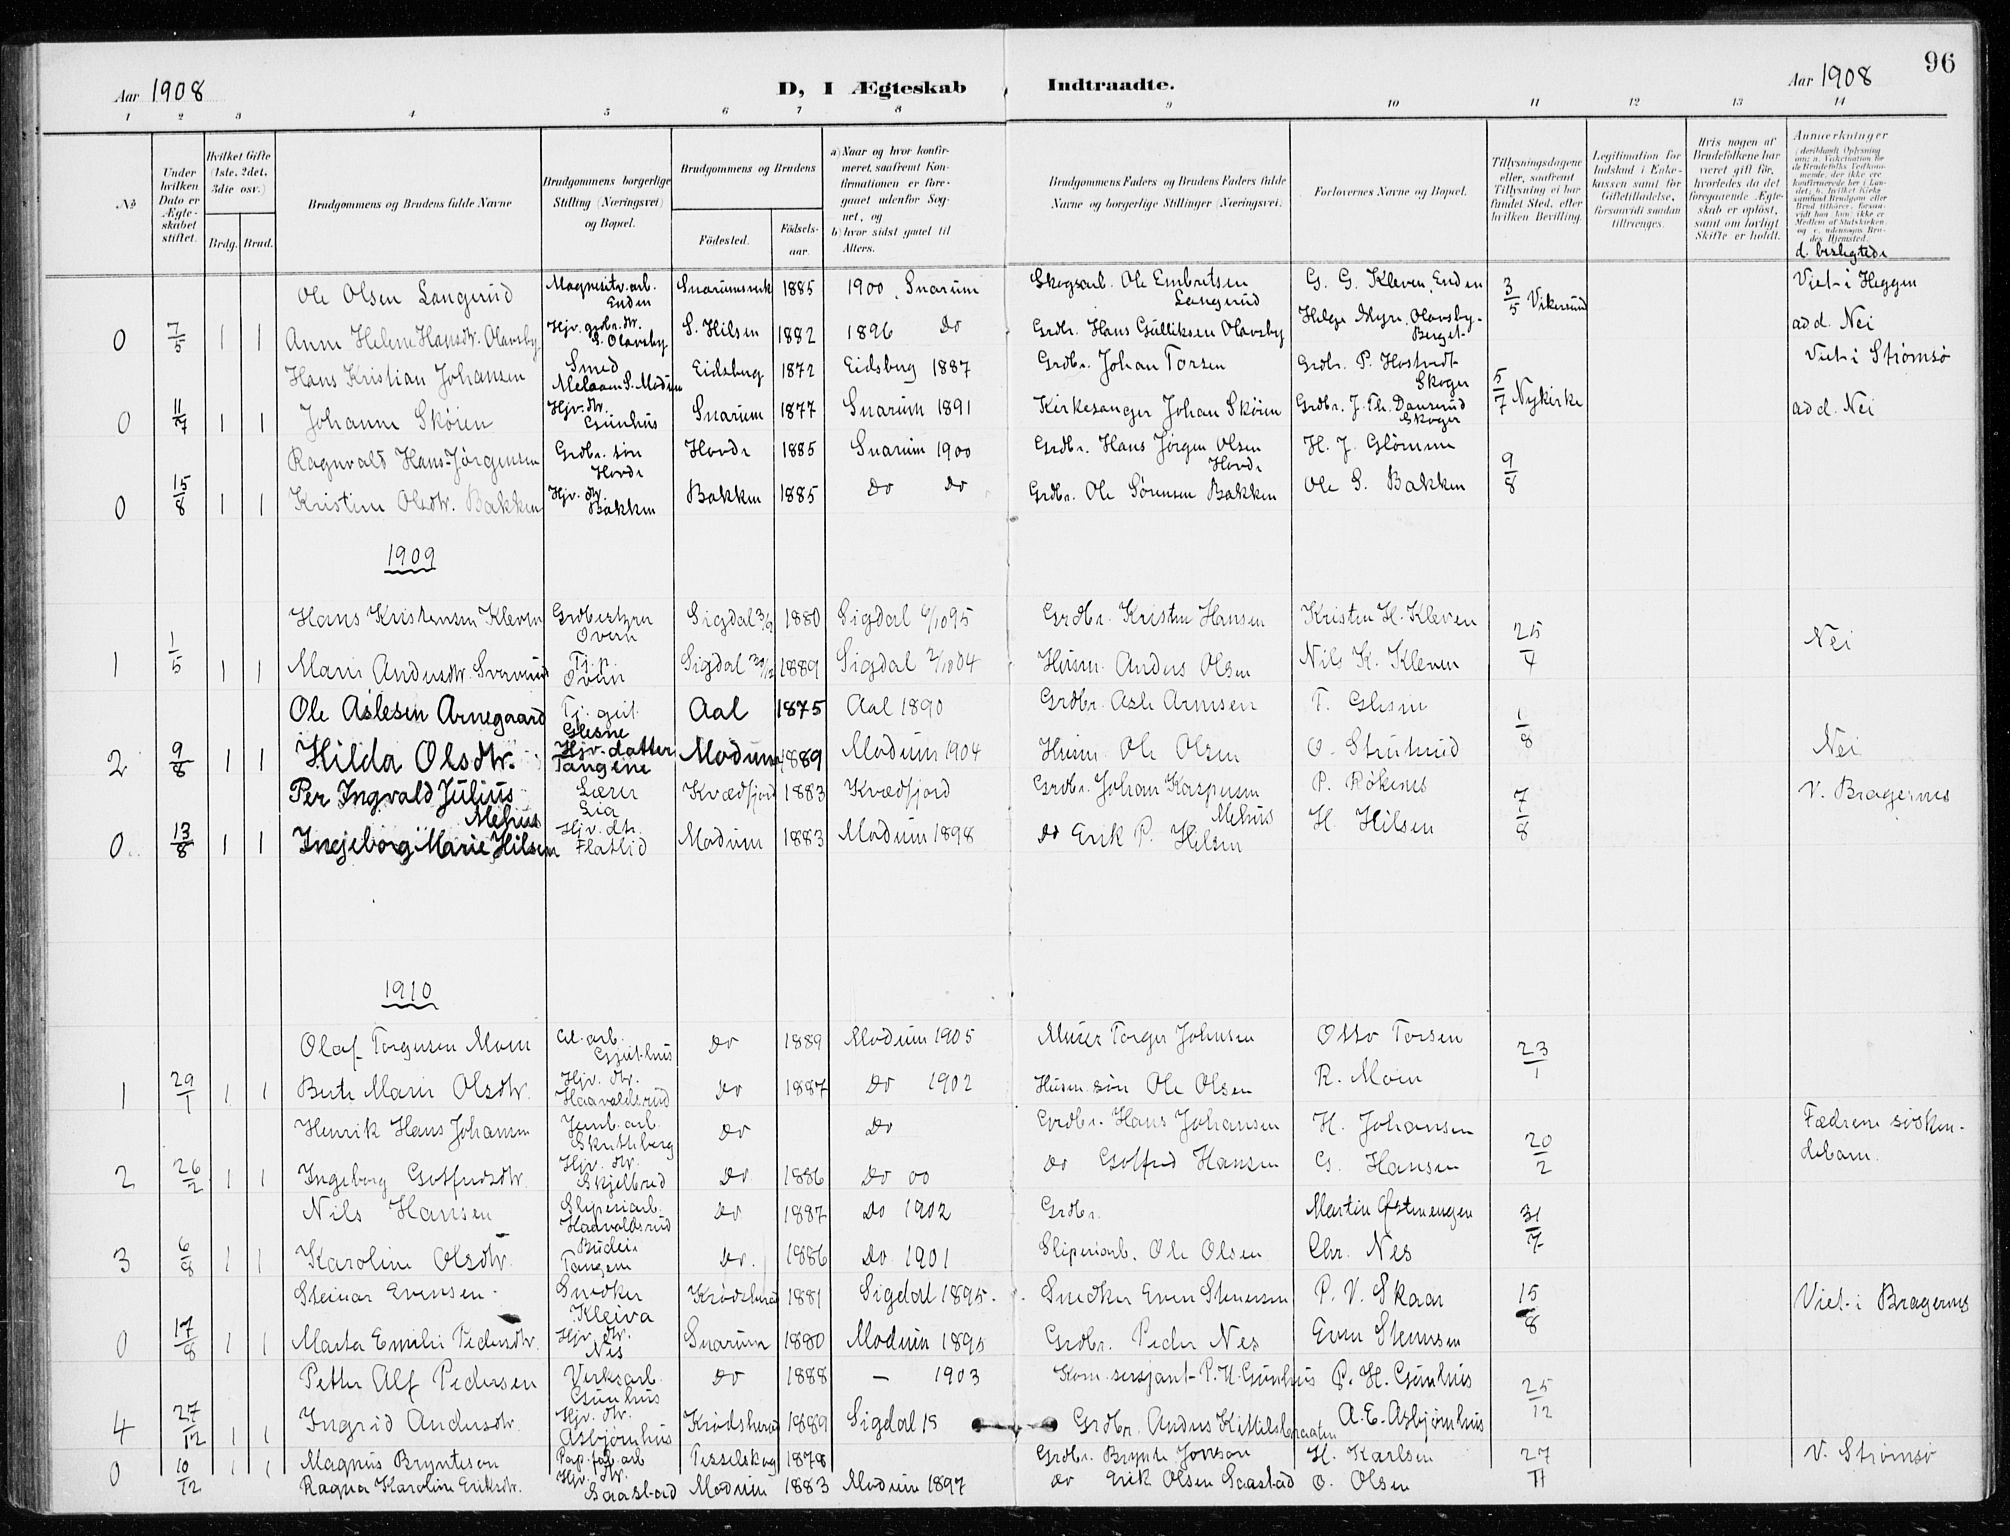 96
Aar 1908
D, I Ægteskab Indtraadte.
Aar 1908
1 2 3 4 5 6 7 8 9 10 11 12 13 14
No
Under hvilken Dato er Ægteskabet stiftet.
Hvilket Gifte (1ste, 2det, 3die osv.)
Brdg. Brud.
Brudgommens og Brudens fulde Navne
Brudgommens borgerlige Stilling (Næringsvei) og Bopæl.
Brudgommens og Brudens
Fødested. Fødselsaar.
a) Naar og hvor konfirmeret, saafremt Konfirmationen er foregaaet udenfor Sognet, og
b) hvor sidst gaaet til Alters.
Brudgommens Faders og Brudens Faders fulde Navne og borgerlige Stillinger (Næringsvei).
Forlovernes Navne og Bopæl.
Tillysningsdagene eller, saafremt Tillysning ei har fundet Sted, efter hvilken Bevilling.
Legitimation for Indskud i Enkekassen samt for Giftetilladelse, forsaavidt saadan tiltrænges.
Hvis nogen af Brudefolkene har været gift før, hvorledes da det foregaaende Ægteskab er opløst, samt om lovligt Skifte er holdt.
Anmærkninger
d. beslegtede
Ole Olsen Langerud Magnesitv. arb. Enden Snarumsverk 1885 1900 Snarum Skogsarb. Ole Embretsen Langerud G. G. Kleven, Enden 3/5 Vikersund Viet i Heggen
0 7/5 1 1 Anne Helene Hansdtr. Olavsby Hjv. grbr. dtr. S. Olavsby S. Hilsen 1882 1896 Do Grdbr. Hans Gulliksen Olavsby Helge Myre, Olavsby-Berget ad d. Nei
Hans Kristian Johansen Smed Melaaen S. Modum Eidsberg 1872 Eidsberg 1887 Grdbr. Johan Torsen Grdbr. P. Hostvedt Skoger 5/7 Nykirke Viet i Strømsø
0 11/7 1 1 Johanne Skøien Hjv. dtr. Gunhus Snarum 1877 Snarum 1891 Kirkesanger Johan Skøien Grdbr. J. Th. Danserud Skoger ad d. Nei
Ragnvald Hans Jørgensen Grdbr. søn Hovde Hovde 1885 Snarum 1900 Grdbr. Hans Jørgen Olsen Hovde H. J. Glømme 9/8
0 15/8 1 1 Kristine Olsdtr. Bakken Hjv. dtr. Bakken Bakken 1885 Do Do Grdbr. Ole Sørensen Bakken Ole S. Bakken
1909
Hans Kristensen Kleven Grdbestyrer Øvern Sigdal 3/9 1880 Sigdal 6/10 95 Grdbr. Kristen Hansen Kristen H. Kleven 25/4
1 1/5 1 1 Marie Andersdtr. Tj. p. Sigdal 1889 Sigdal 2/10 04 Husm. Anders Olsen Nils K. Kleven Nei
Ole Aslesen Arnegaard Tj. gut Glesne Aal 1875 Aal 1890 Grdbr. Asle Arnesen T. Glesne 1/8
2 9/8 1 1 Hilda Olsdtr. Hjv. datter Tangene Modum 1889 Modum 1904 Husm. Ole Olsen O. Strutrud Nei
Per Ingvald Julius Mehus Lærer Lia Kvædfjord 1883 Kvædfjord Grdbr. Johan Kaspersen Mehus P. Røkenes 7/8 V. Bragernes
0 13/8 1 1 Ingeborg Marie Hilsen Hjv. dtr. Flatlid Modum 1883 Modum 1898 Do Erik P. Hilsen H. Hilsen
1910
Olaf Torgersen Moen Gjethus Do 1889 Modum 1905 Murer Torger Johnsen Otto Torsen 23/1
1 29/1 1 1 Berte Marie Olsdtr. Hjv. dtr. Haavaldsrud Do 1887 Do 1902 Husm. søn Ole Olsen R. Moen
Henrik Hans Johansen Jernb. arb. Skutteberg Do Do Grdbr. Hans Johansen H. Johansen 20/2 Fædrene søskendebarn.
2 26/2 1 1 Ingeborg Gotfredsdtr. Hjv. dtr. Skjelbred Do 1886 Do 00 Do Gotfred Hansen G. Hansen
Nils Hansen Sliperiarb. Haavaldsrud Do 1887 Do 1902 Grdbr. Martin Østmengen 31/7
3 6/8 1 1 Karoline Olsdtr. Budeie Tangen Do. 1886 Do 1901 Sliperiarb. Ole Olsen Chr. Nes
Steinar Evensen Snedker Kleiva Krødsherad 1881 Sigdal 1895. Snedker Even Stenersen P. V. Skaar 15/8 Viet i Bragernes
0 17/8 1 1 Marta Emilie Pedersdtr. Hjv. dtr. Nes Snarum 1880 Modum 1895 Grdbr. Peder Nes Even Stenersen
Petter Alf Pedersen Verksarb. Gunhus Do 1888 — 1903 Kom. sersjant P. H. Gunhus P. H. Gunhus 25/12
4 27/12 1 1 Ingrid Andersdtr. Hjv. dtr. Asbjørnhus Krødsherad 1889 Sigdal 15 Grdbr. Anders Kittilsbraaten A. E. Asbjørnhus
0 10/12 1 1 Magnus Brynteson Pap. fab. arb Tisselskog 1878 Grdbr. Brynte Jonsson H. Karlsen 27/11 V. Strømsø
Ragna Karoline Eriksdtr. Hjv. dtr. Saastad Modum 1883 Modum 1897 Do Erik Olsen Saastad O. Olsen